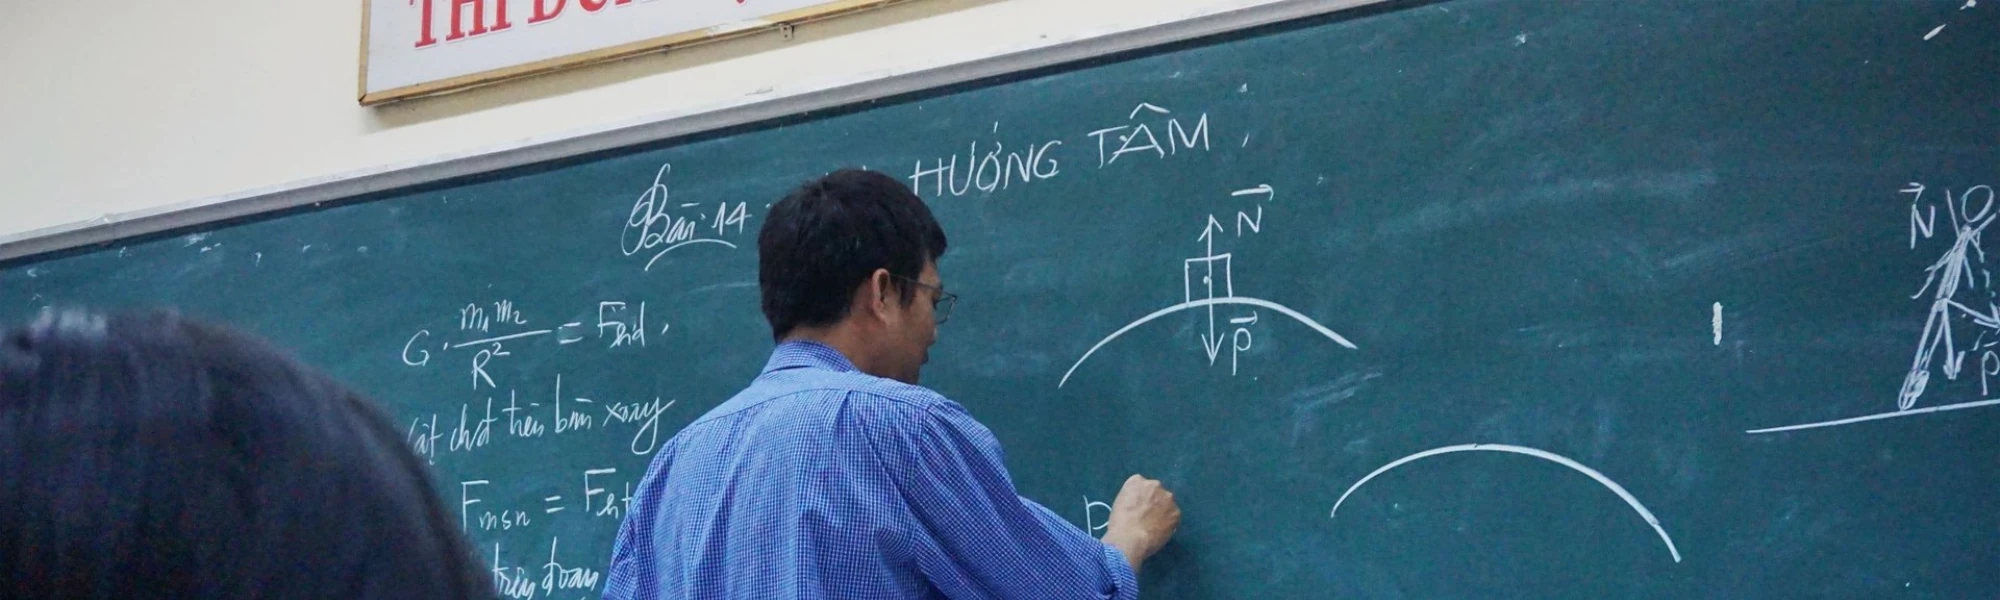 THI
Bài 14
HƯỚNG TÂM
G. m₁m₂ / R² = Fhd
chặt trên bàn xoay
Fmsn = Fht
trên đoạn
N
P
P
N
P